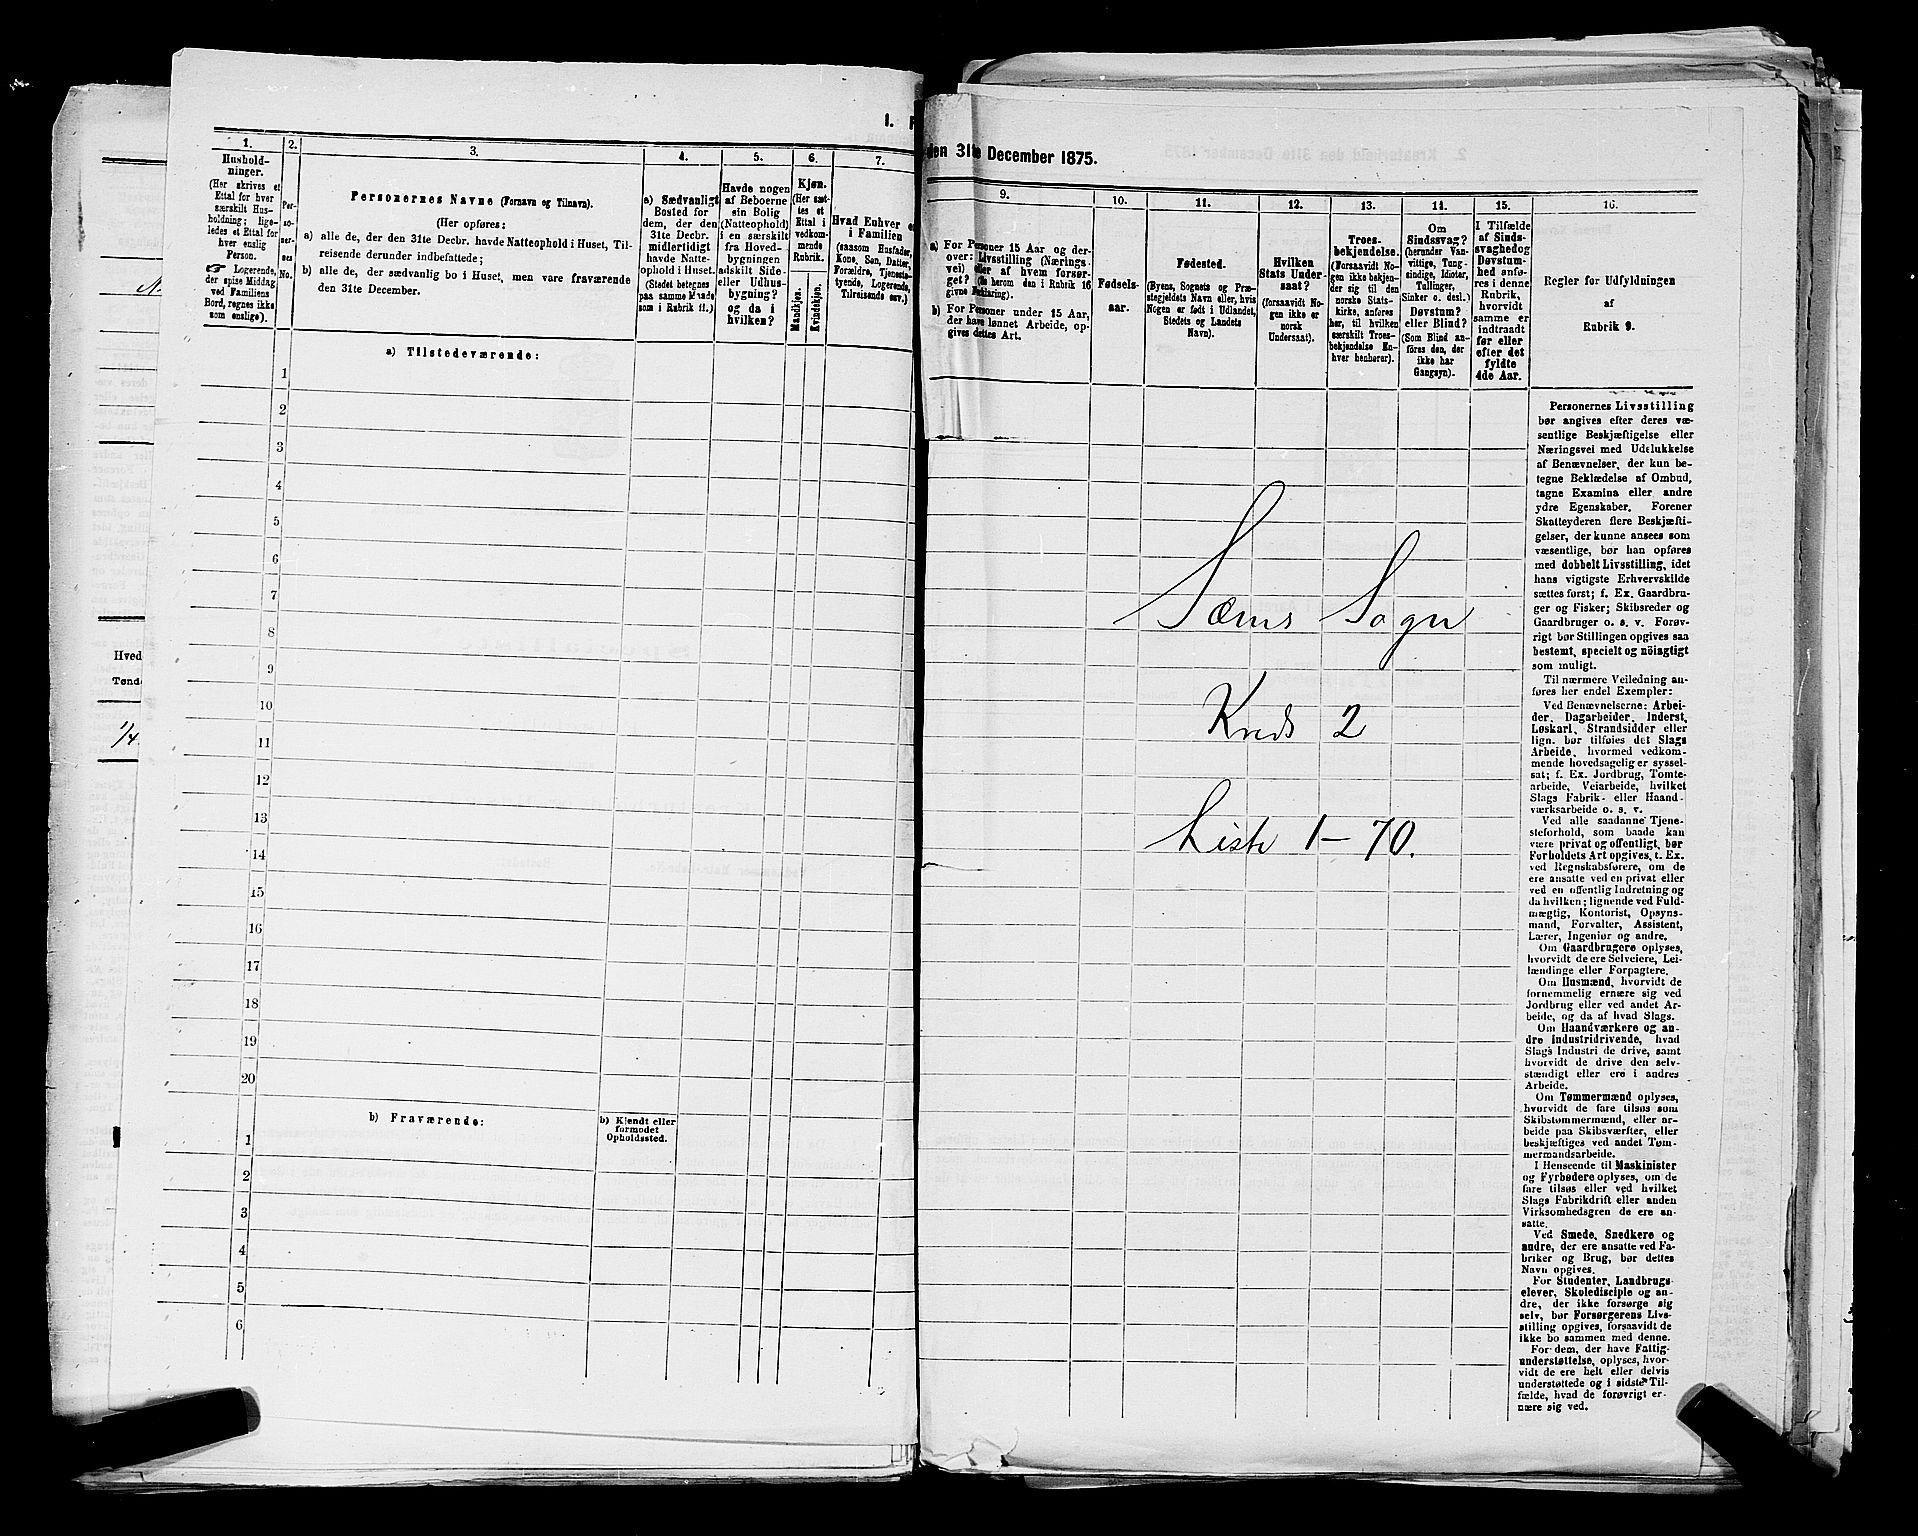 I. F
1.
Hushold-
ninger.
(Her skrives et
Ettal for hver
særskilt Hus-
holdning; lige-
ledes et Ettal for
hver enslig
Person.
☞ Logerende,
der spise Middag
ved Familiens
Bord, regnes ikke
som enslige).
2.
Per-
so-
ner-
nes
No.
3.
Personernes Navne (Fornavn og Tilnavn).
(Her opføres:
a) alle de, der den 31te Decbr. havde Natteophold i Huset, Til-
reisende derunder indbefattede;
b) alle de, der sædvanlig bo i Huset, men vare fraværende
den 31te December.
4.
a) Sædvanligt
Bosted for
dem, der den
31te Decbr.
midlertidigt
havde Natte-
ophold i Huset.
(Stedet betegnes
paa samme Maade
som i Rubrik 11.)
5.
Havde nogen
af Beboerne
sin Bolig
(Natteophold)
i en særskilt
fra Hoved-
bygningen
adskilt Side-
eller Udhus-
bygning?
og da i
hvilken?
6.
Kjøn.
(Her sæt-
tes et
Ettal i
vedkom-
mende
Rubrik.
Mandkjøn.
Kvindekjøn.
7.
Hvad Enhver er
i Familien
(saasom Husfader,
Kone, Søn, Datter,
Forældre, Tjeneste-
tyende, Logerende,
Tilreisende osv.)
a) Tilstedeværende:
1
2
3
4
5
6
7
8
9
10
11
12
13
14
15
16
17
18
19
20
b) Fraværende:
b) Kjendt eller
formodet
Opholdssted.
1
2
3
4
5
6
Hved
Tønde
1/4
den 31te December 1875.
9.
a) For Personer 15 Aar og der-
over: Livsstilling (Nærings-
vei) eller af hvem forsør-
get? (Se herom den i Rubrik 16
givne Forklaring).
b) For Personer under 15 Aar,
der have lønnet Arbeide, op-
gives dettes Art.
10.
Fødsels-
aar.
11.
Fødested.
(Byens, Sognets og Præ-
stegjeldets Navn eller, hvis
Nogen er født i Udlandet,
Stedets og Landets
Navn).
12.
Hvilken
Stats Under-
saat?
(forsaavidt No-
gen ikke er
norsk
Undersaat).
13.
Troes-
bekjendelse.
(Forsaavidt No-
gen ikke bekjen-
der sig til den
norske Stats-
kirke, anføres
her, til hvilken
særskilt Troes-
bekjendelse En-
hver henhører).
14.
Om
Sindssvag?
(herunder Van-
vittige, Tung-
sindige, Idioter,
Tullinger,
Sinker o. desl.)
Døvstum?
eller Blind?
(Som Blind an-
føres den, der
ikke har
Gangsyn).
15.
I Tilfælde
af Sinds-
svaghed og
Døvstum-
hed anfø-
res i denne
Rubrik,
hvorvidt
samme er
indtraadt
før eller
efter det
fyldte
4de Aar.
16.
Regler for Udfyldningen
af
Rubrik 9.
Sæms Sogn
Kreds 2
Liste 1–70.
Personernes Livsstilling
bør angives efter deres væ-
sentlige Beskjæftigelse eller
Næringsvei med Udelukkelse
af Benævnelser, der kun be-
tegne Beklædelse af Ombud,
tagne Examina eller andre
ydre Egenskaber. Forener
Skatteyderen flere Beskjæfti-
gelser, der kunne ansees som
væsentlige, bør han opføres
med dobbelt Livsstilling, idet
hans vigtigste Erhvervskilde
sættes først; f. Ex. Gaardbru-
ger og Fisker; Skibsreder og
Gaardbruger o. s. v. Forøv-
rigt bør Stillingen opgives saa
bestemt, specielt og nøiagtigt
som muligt.
Til nærmere Veiledning an-
føres her endel Exempler:
Ved Benævnelserne: Arbei-
der, Dagarbeider, Inderst,
Løskarl, Strandsidder eller
lign. bør tilføies det Slags
Arbeide, hvormed vedkom-
mende hovedsagelig er syssel-
sat; f. Ex. Jordbrug, Tomte-
arbeide, Veiarbeide, hvilket
Slags Fabrik- eller Haand-
værksarbeide o. s. v.
Ved alle saadanne Tjene-
steforhold, som baade kan
være privat og offentligt, bør
Forholdets Art opgives, t. Ex.
ved Regnskabsførere, om de
ere ansatte ved en privat eller
ved en offentlig Indretning og
da hvilken; lignende ved Fuld-
mægtig, Kontorist, Opsyns-
mand, Forvalter, Assistent,
Lærer, Ingeniør og andre.
Om Gaardbrugere oplyses,
hvorvidt de ere Selveiere, Lei-
lændinge eller Forpagtere.
Om Husmænd, hvorvidt de
fornemmelig ernære sig ved
Jordbrug eller ved andet Ar-
beide, og da af hvad Slags.
Om Haandværkere og an-
dre Industridrivende, hvad
Slags Industri de drive, samt
hvorvidt de drive den selv-
stændigt eller ere i andres
Arbeide.
Om Tømmermænd oplyses,
hvorvidt de fare tilsøs som
Skibstømmermænd, eller ar-
beide paa Skibsværfter, eller
beskjæftiges ved andet Tøm-
mermandsarbeide.
I Henseende til Maskinister
og Fyrbødere oplyses, om de
fare tilsøs eller ved hvilket
Slags Fabrikdrift eller anden
Virksomhedsgren de ere an-
satte.
Ved Smede, Snedkere og
andre, der ere ansatte ved Fa-
briker og Brug, bør dettes
Navn opgives.
For Studenter, Landbrugs-
elever, Skoledisciple og an-
dre, der ikke forsørge sig
selv, bør Forsørgerens Livs-
stilling opgives, forsaavidt de
ikke bo sammen med denne.
For dem, der have Fattig-
understøttelse, oplyses, hvor-
vidt de ere helt eller delvis
understøttede og i sidste Til-
fælde, hvad de forøvrigt er-
nære sig ved.